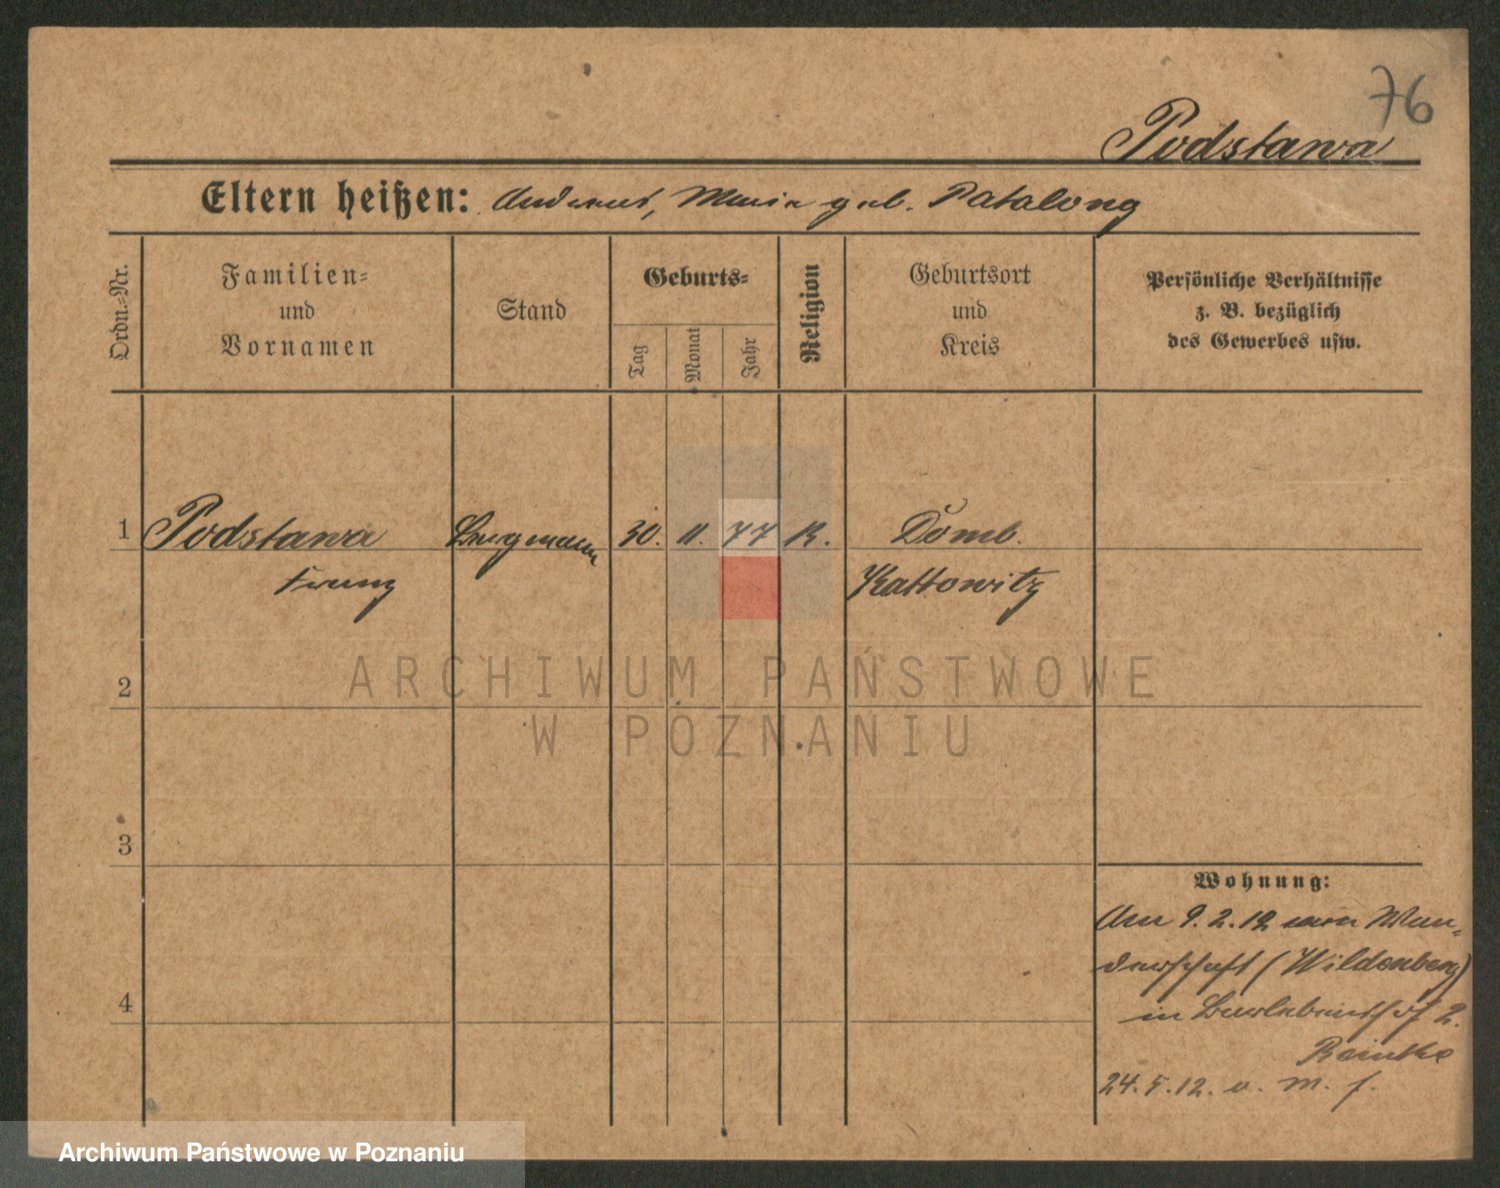 76
Podstawa
Eltern heißen: Andreas, Maria geb. Patalong
Ordn.-Nr.
Familien-
und
Vornamen
Stand
Geburts-
Tag
Monat
Jahr
Religion
Geburtsort
und
Kreis
Persönliche Verhältnisse
z. B. bezüglich
des Gewerbes usw.
1 Podstawa Bergmann 30. 11. 77 K. Domb.
Franz Kattowitz
ARCHIWUM PAŃSTWOWE
W POZNANIU
2
3
4
Wohnung:
Am 9.2.12 von Wan-
derschaft (Wildenberg)
in 2.
Reinke
24.5.12. v. m. f.
Archiwum Państwowe w Poznaniu